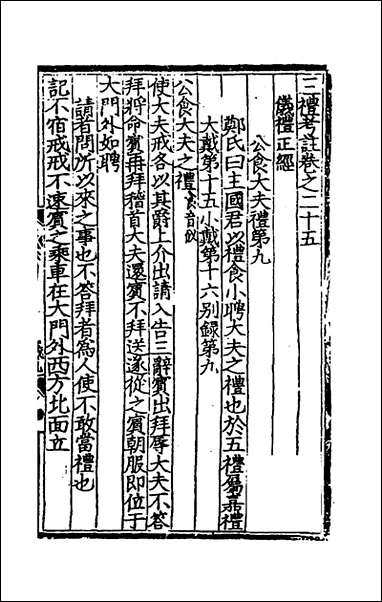 三禮考註卷之二十五
儀禮正經
公食大夫禮第九
鄭氏曰主國君以禮食小聘大夫之禮也於五禮屬嘉禮
大戴第十五小戴第十六別録第九
公食大夫之禮食音飤
使大夫戒各以其爵上介出請入告三辭賓出拜辱大夫不答
拜將命賓再拜稽首大夫還賓不拜送遂從之賓朝服即位于
大門外如聘
請者問所以來之事也不答拜者為人使不敢當禮也
記不宿戒戒不速賓之乘車在大門外西方北面立